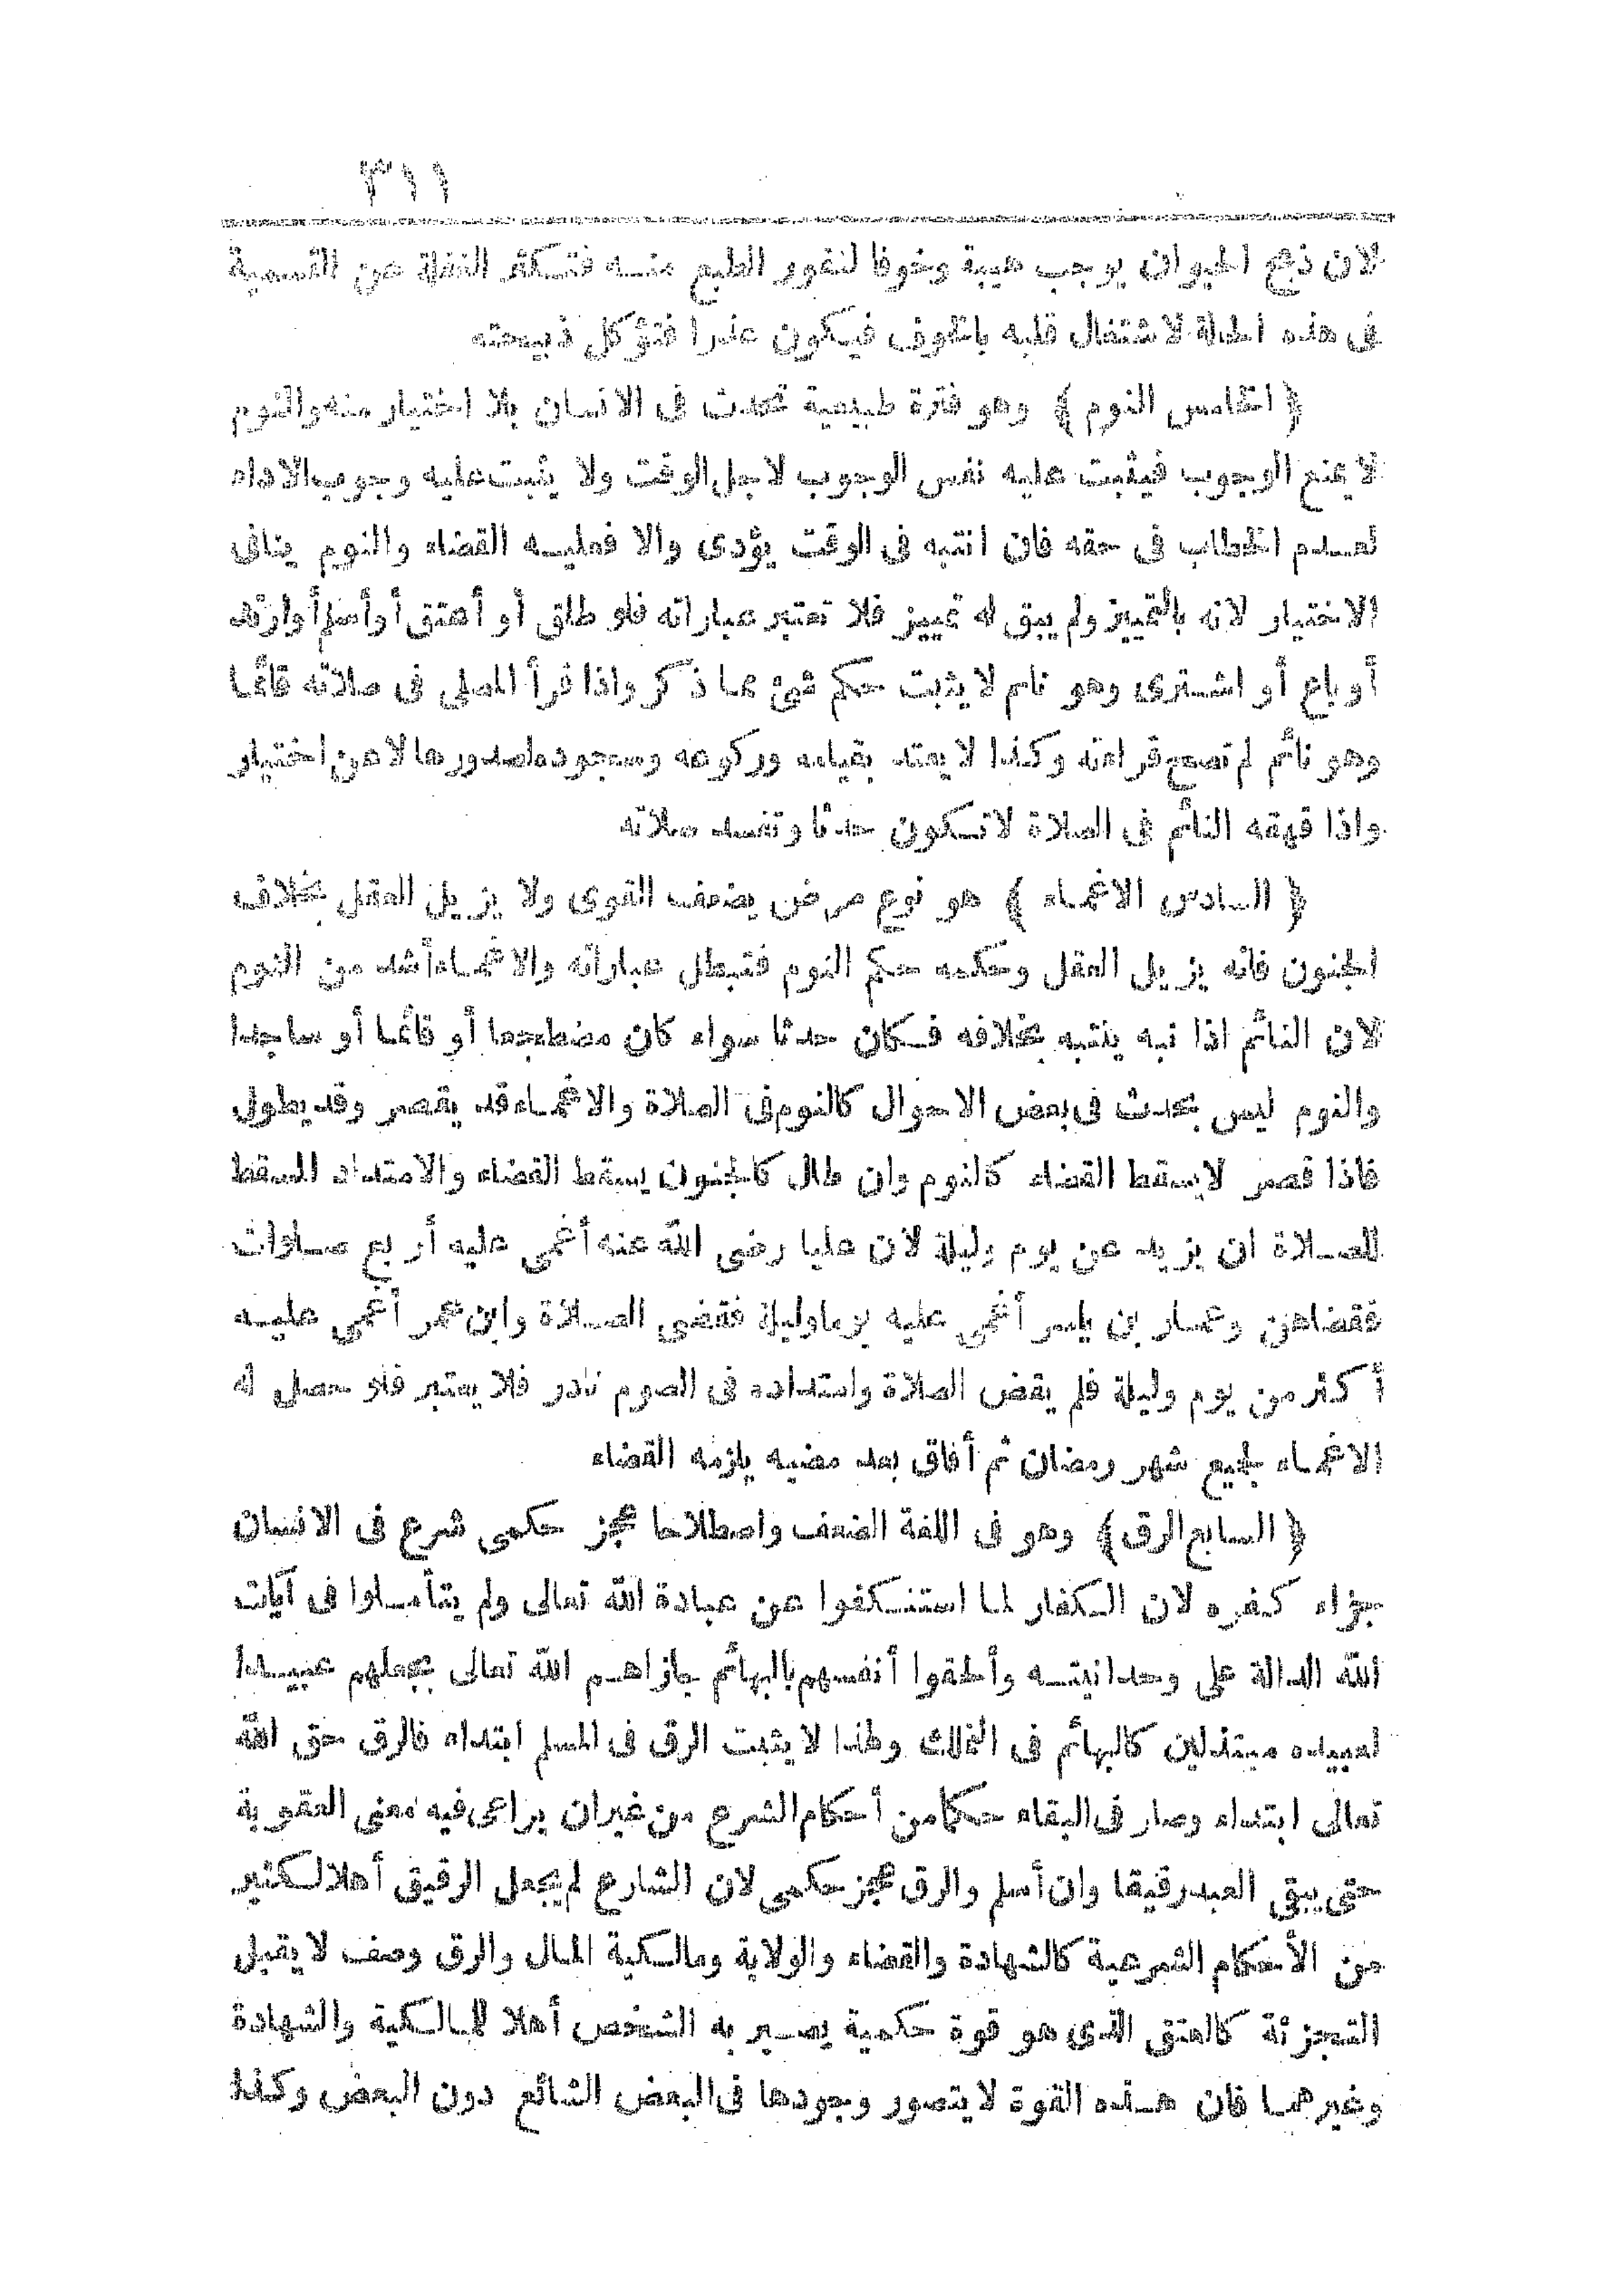 ٣١١
لان ذبح الحيوان يوجب هيبة وخوفا لنفور الطبع منه فتكثر الغفلة عن التسمية
فى هذه الحالة لاشتغال قلبه بالخوف فيكون عذرا فتؤكل ذبيحته
﴿ الخامس النوم ﴾ وهو فترة طبيعية تحدث فى الانسان بلا اختيار منه والنوم
لا يمنع الوجوب فيثبت عليه نفس الوجوب لاجل الوقت ولا يثبت عليه وجوب الاداء
لعدم الخطاب فى حقه فان انتبه فى الوقت يؤدى والا فعليه القضاء والنوم ينافى
الاختيار لانه بالتمييز ولم يبق له تمييز فلا تعتبر عباراته فلو طلق أو أعتق أو أسلم أو ارتد
أو باع أو اشترى وهو نائم لا يثبت حكم شئ مما ذكر واذا قرأ المصلى فى صلاته قائما
وهو نائم لم تصح قراءته وكذا لا يعتد بقيامه وركوعه وسجوده لصدورها لا عن اختيار
واذا قهقه النائم فى الصلاة لا تكون حدثا وتفسد صلاته
﴿ السادس الاغماء ﴾ هو نوع مرض يضعف القوى ولا يزيل العقل بخلاف
الجنون فانه يزيل العقل وحكمه حكم النوم فتبطل عباراته والاغماء أشد من النوم
لان النائم اذا نبه ينتبه بخلافه فكان حدثا سواء كان مضطجعا أو قائما أو ساجدا
والنوم ليس بحدث فى بعض الاحوال كالنوم فى الصلاة والاغماء قد يقصر وقد يطول
فاذا قصر لا يسقط القضاء كالنوم وان طال كالجنون يسقط القضاء والامتداد المسقط
للصلاة ان يزيد عن يوم وليلة لان عليا رضى الله عنه أغمى عليه أربع صلوات
فقضاهن وعمار بن ياسر أغمى عليه يوما وليلة فقضى الصلاة وابن عمر أغمى عليه
أكثر من يوم وليلة فلم يقض الصلاة وامتداده فى الصوم نادر فلا يعتبر فلو حصل له
الاغماء لجميع شهر رمضان ثم أفاق بعد مضيه يلزمه القضاء
﴿ السابع الرق ﴾ وهو فى اللغة الضعف واصطلاحا عجز حكمى شرع فى الانسان
جزاء كفره لان الكفار لما استنكفوا عن عبادة الله تعالى ولم يتأملوا فى آيات
الله الدالة على وحدانيته وألحقوا أنفسهم بالبهائم جازاهم الله تعالى بجعلهم عبيدا
لعبيده مبتذلين كالبهائم فى التملك ولهذا لا يثبت الرق فى المسلم ابتداء فالرق حق الله
تعالى ابتداء وصار فى البقاء حكما من أحكام الشرع من غير ان يراعى فيه معنى العقوبة
حتى يبقى العبد رقيقا وان أسلم والرق عجز حكمى لان الشارع لم يجعل الرقيق أهلا لكثير
من الأحكام الشرعية كالشهادة والقضاء والولاية ومالكية المال والرق وصف لا يقبل
التجزئة كالعتق الذى هو قوة حكمية يصير به الشخص أهلا للمالكية والشهادة
وغيرهما فان هذه القوة لا يتصور وجودها فى البعض الشائع دون البعض وكذا